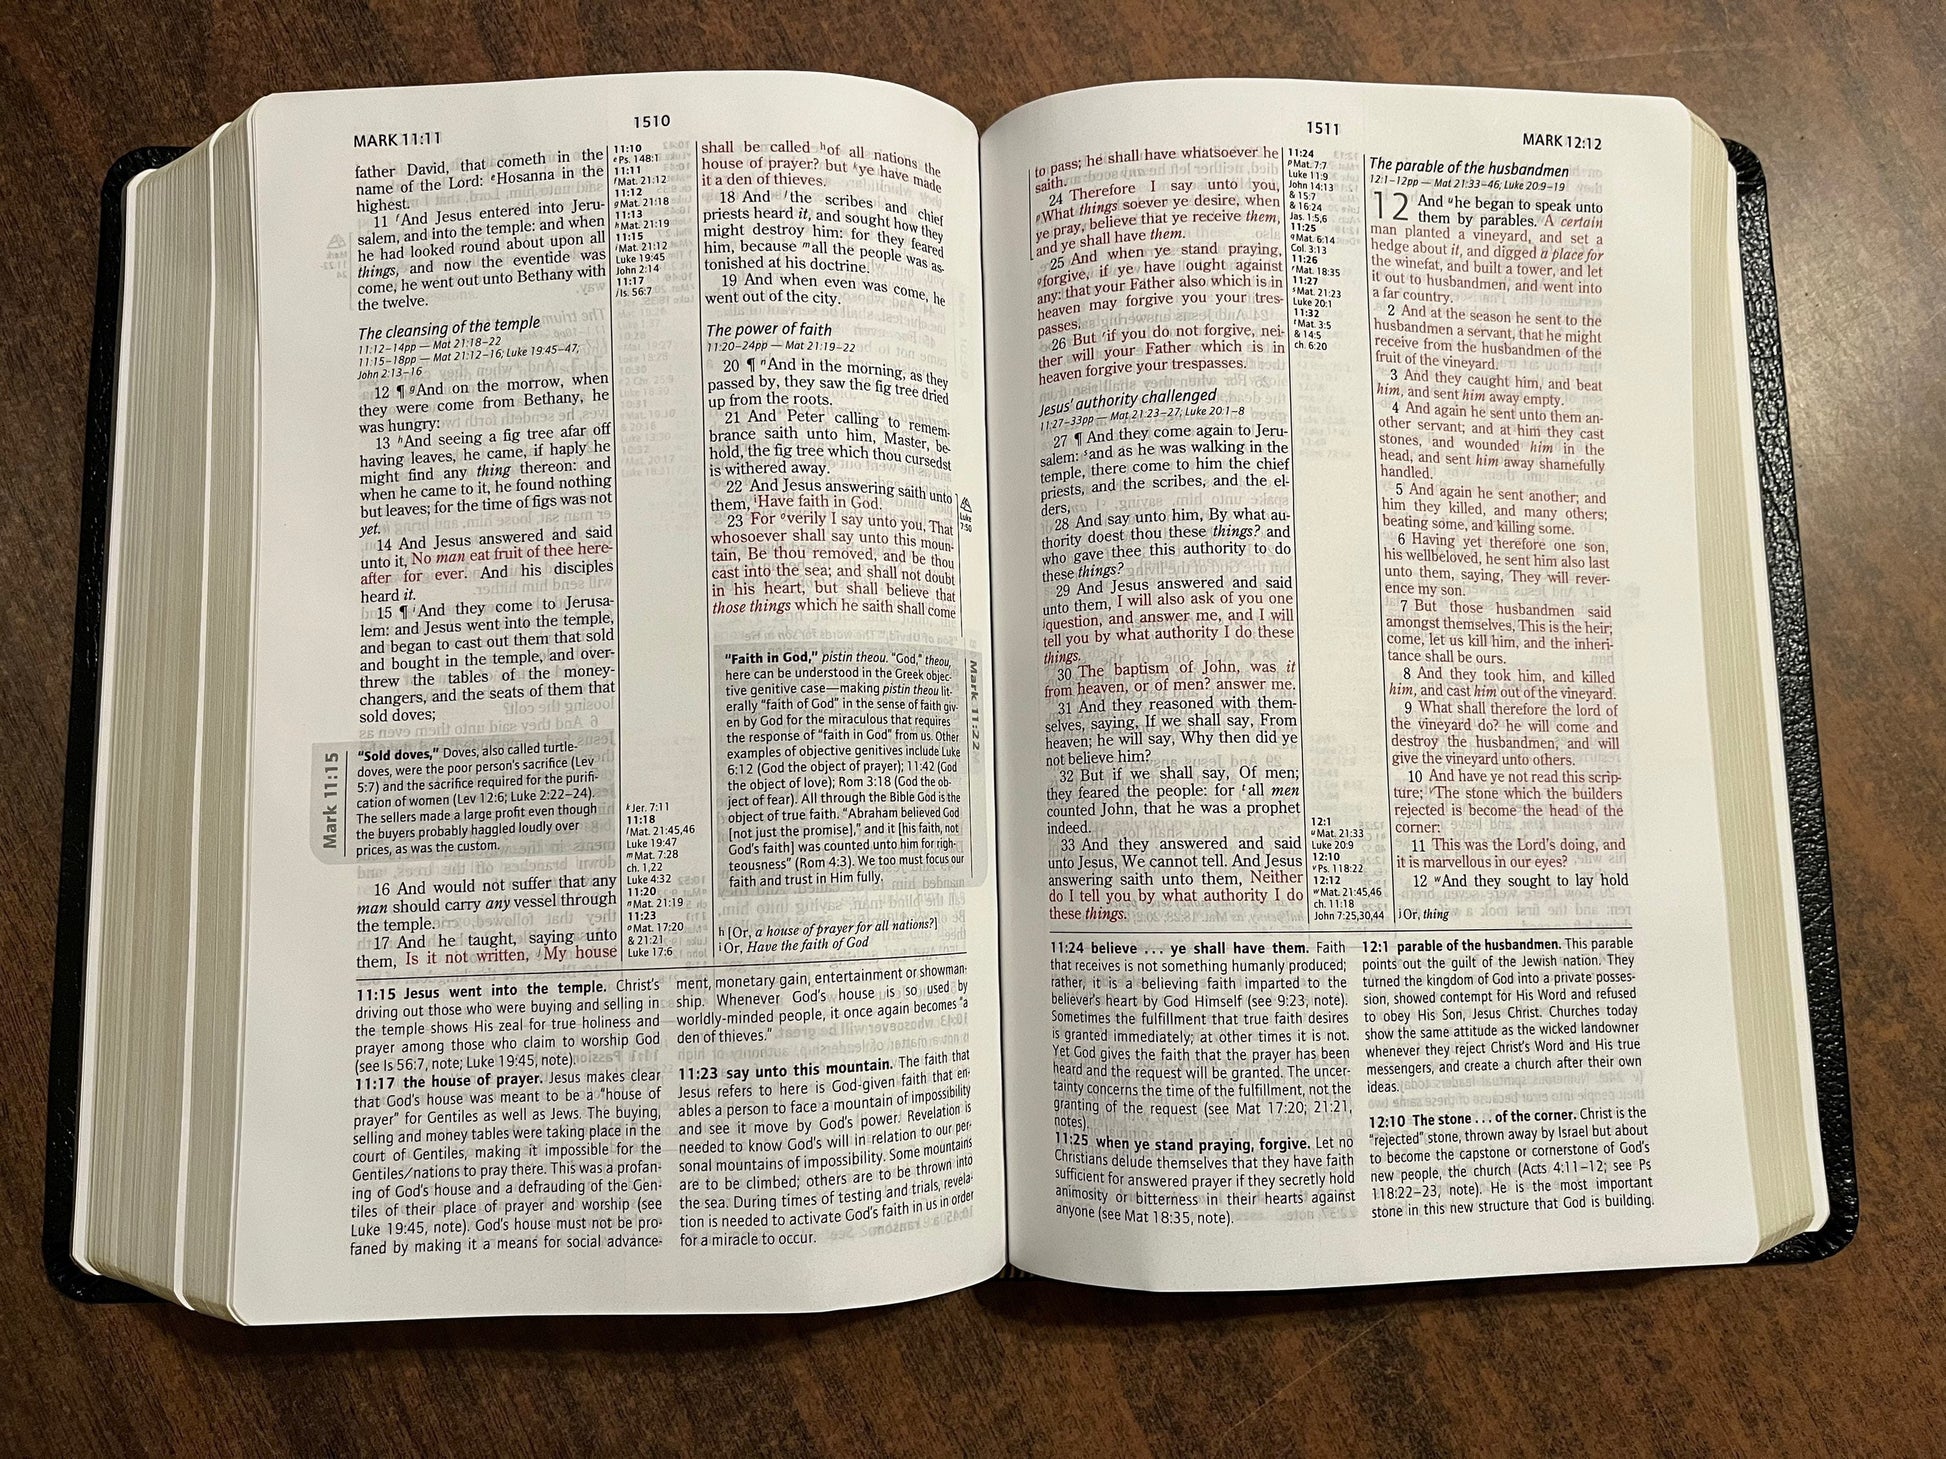 MARK 11:11
1510
father David, that cometh in the
name of the Lord: eHosanna in the
highest.
11 fAnd Jesus entered into Jeru-
salem, and into the temple: and when
he had looked round about upon all
things, and now the eventide was
come, he went out unto Bethany with
the twelve.
The cleansing of the temple
11:12–14pp — Mat 21:18–22
11:15–18pp — Mat 21:12–16; Luke 19:45–47;
John 2:13–16
12 ¶ gAnd on the morrow, when
they were come from Bethany, he
was hungry:
13 hAnd seeing a fig tree afar off
having leaves, he came, if haply he
might find any thing thereon: and
when he came to it, he found nothing
but leaves; for the time of figs was not
yet.
14 And Jesus answered and said
unto it, No man eat fruit of thee here-
after for ever. And his disciples
heard it.
15 ¶ iAnd they come to Jerusa-
lem: and Jesus went into the temple,
and began to cast out them that sold
and bought in the temple, and over-
threw the tables of the money-
changers, and the seats of them that
sold doves;
Mark 11:15
"Sold doves," Doves, also called turtle-
doves, were the poor person's sacrifice (Lev
5:7) and the sacrifice required for the purifi-
cation of women (Lev 12:6; Luke 2:22–24).
The sellers made a large profit even though
the buyers probably haggled loudly over
prices, as was the custom.
16 And would not suffer that any
man should carry any vessel through
the temple.
17 And he taught, saying unto
them, Is it not written, jMy house
11:10
e Ps. 148:1
11:11
f Mat. 21:12
11:12
g Mat. 21:18
11:13
h Mat. 21:19
11:15
i Mat. 21:12
Luke 19:45
John 2:14
11:17
j Is. 56:7
k Jer. 7:11
11:18
l Mat. 21:45,46
Luke 19:47
m Mat. 7:28
ch. 1,22
Luke 4:32
11:20
n Mat. 21:19
11:23
o Mat. 17:20
& 21:21
Luke 17:6
shall be called hof all nations the
house of prayer? but kye have made
it a den of thieves.
18 And lthe scribes and chief
priests heard it, and sought how they
might destroy him: for they feared
him, because mall the people was as-
tonished at his doctrine.
19 And when even was come, he
went out of the city.
The power of faith
11:20–24pp — Mat 21:19–22
20 ¶ nAnd in the morning, as they
passed by, they saw the fig tree dried
up from the roots.
21 And Peter calling to remem-
brance saith unto him, Master, be-
hold, the fig tree which thou cursedst
is withered away.
22 And Jesus answering saith unto
them, iHave faith in God.
23 For overily I say unto you, That
whosoever shall say unto this moun-
tain, Be thou removed, and be thou
cast into the sea; and shall not doubt
in his heart, but shall believe that
those things which he saith shall come
Luke
7:50
"Faith in God," pistin theou. "God," theou,
here can be understood in the Greek objec-
tive genitive case—making pistin theou lit-
erally "faith of God" in the sense of faith giv-
en by God for the miraculous that requires
the response of "faith in God" from us. Other
examples of objective genitives include Luke
6:12 (God the object of prayer); 11:42 (God
the object of love); Rom 3:18 (God the ob-
ject of fear). All through the Bible God is the
object of true faith. "Abraham believed God
[not just the promise]," and it [his faith, not
God's faith] was counted unto him for righ-
teousness" (Rom 4:3). We too must focus our
faith and trust in Him fully.
Mark 11:22
h [Or, a house of prayer for all nations?]
i Or, Have the faith of God
11:15 Jesus went into the temple. Christ's
driving out those who were buying and selling in
the temple shows His zeal for true holiness and
prayer among those who claim to worship God
(see Is 56:7, note; Luke 19:45, note).
11:17 the house of prayer. Jesus makes clear
that God's house was meant to be a "house of
prayer" for Gentiles as well as Jews. The buying,
selling and money tables were taking place in the
court of Gentiles, making it impossible for the
Gentiles/nations to pray there. This was a profan-
ing of God's house and a defrauding of the Gen-
tiles of their place of prayer and worship (see
Luke 19:45, note). God's house must not be pro-
faned by making it a means for social advance-
ment, monetary gain, entertainment or showman-
ship. Whenever God's house is so used by
worldly-minded people, it once again becomes "a
den of thieves."
11:23 say unto this mountain. The faith that
Jesus refers to here is God-given faith that en-
ables a person to face a mountain of impossibility
and see it move by God's power. Revelation is
needed to know God's will in relation to our per-
sonal mountains of impossibility. Some mountains
are to be climbed; others are to be thrown into
the sea. During times of testing and trials, revela-
tion is needed to activate God's faith in us in order
for a miracle to occur.
1511
MARK 12:12
to pass; he shall have whatsoever he
saith.
24 Therefore I say unto you,
pWhat things soever ye desire, when
ye pray, believe that ye receive them,
and ye shall have them.
25 And when ye stand praying,
qforgive, if ye have ought against
any: that your Father also which is in
heaven may forgive you your tres-
passes.
26 But rif you do not forgive, nei-
ther will your Father which is in
heaven forgive your trespasses.
Jesus' authority challenged
11:27–33pp — Mat 21:23–27; Luke 20:1–8
27 ¶ And they come again to Jeru-
salem: sand as he was walking in the
temple, there come to him the chief
priests, and the scribes, and the el-
ders,
28 And say unto him, By what au-
thority doest thou these things? and
who gave thee this authority to do
these things?
29 And Jesus answered and said
unto them, I will also ask of you one
jquestion, and answer me, and I will
tell you by what authority I do these
things.
30 The baptism of John, was it
from heaven, or of men? answer me.
31 And they reasoned with them-
selves, saying, If we shall say, From
heaven; he will say, Why then did ye
not believe him?
32 But if we shall say, Of men;
they feared the people: for tall men
counted John, that he was a prophet
indeed.
33 And they answered and said
unto Jesus, We cannot tell. And Jesus
answering saith unto them, Neither
do I tell you by what authority I do
these things.
11:24
p Mat. 7:7
Luke 11:9
John 14:13
& 15:7
& 16:24
Jas. 1:5,6
11:25
q Mat. 6:14
Col. 3:13
11:26
r Mat. 18:35
11:27
s Mat. 21:23
Luke 20:1
11:32
t Mat. 3:5
& 14:5
ch. 6:20
12:1
u Mat. 21:33
Luke 20:9
12:10
v Ps. 118:22
12:12
w Mat. 21:45,46
ch. 11:18
John 7:25,30,44
The parable of the husbandmen
12:1–12pp — Mat 21:33–46; Luke 20:9–19
12 And uhe began to speak unto
them by parables. A certain
man planted a vineyard, and set a
hedge about it, and digged a place for
the winefat, and built a tower, and let
it out to husbandmen, and went into
a far country.
2 And at the season he sent to the
husbandmen a servant, that he might
receive from the husbandmen of the
fruit of the vineyard.
3 And they caught him, and beat
him, and sent him away empty.
4 And again he sent unto them an-
other servant; and at him they cast
stones, and wounded him in the
head, and sent him away shamefully
handled.
5 And again he sent another; and
him they killed, and many others;
beating some, and killing some.
6 Having yet therefore one son,
his wellbeloved, he sent him also last
unto them, saying, They will rever-
ence my son.
7 But those husbandmen said
amongst themselves, This is the heir;
come, let us kill him, and the inheri-
tance shall be ours.
8 And they took him, and killed
him, and cast him out of the vineyard.
9 What shall therefore the lord of
the vineyard do? he will come and
destroy the husbandmen, and will
give the vineyard unto others.
10 And have ye not read this scrip-
ture; vThe stone which the builders
rejected is become the head of the
corner:
11 This was the Lord's doing, and
it is marvellous in our eyes?
12 wAnd they sought to lay hold
j Or, thing
11:24 believe . . . ye shall have them. Faith
that receives is not something humanly produced;
rather, it is a believing faith imparted to the
believer's heart by God Himself (see 9:23, note).
Sometimes the fulfillment that true faith desires
is granted immediately; at other times it is not.
Yet God gives the faith that the prayer has been
heard and the request will be granted. The uncer-
tainty concerns the time of the fulfillment, not the
granting of the request (see Mat 17:20; 21:21,
notes).
11:25 when ye stand praying, forgive. Let no
Christians delude themselves that they have faith
sufficient for answered prayer if they secretly hold
animosity or bitterness in their hearts against
anyone (see Mat 18:35, note).
12:1 parable of the husbandmen. This parable
points out the guilt of the Jewish nation. They
turned the kingdom of God into a private posses-
sion, showed contempt for His Word and refused
to obey His Son, Jesus Christ. Churches today
show the same attitude as the wicked landowner
whenever they reject Christ's Word and His true
messengers, and create a church after their own
ideas.
12:10 The stone . . . of the corner. Christ is the
"rejected" stone, thrown away by Israel but about
to become the capstone or cornerstone of God's
new people, the church (Acts 4:11–12; see Ps
118:22–23, note). He is the most important
stone in this new structure that God is building.